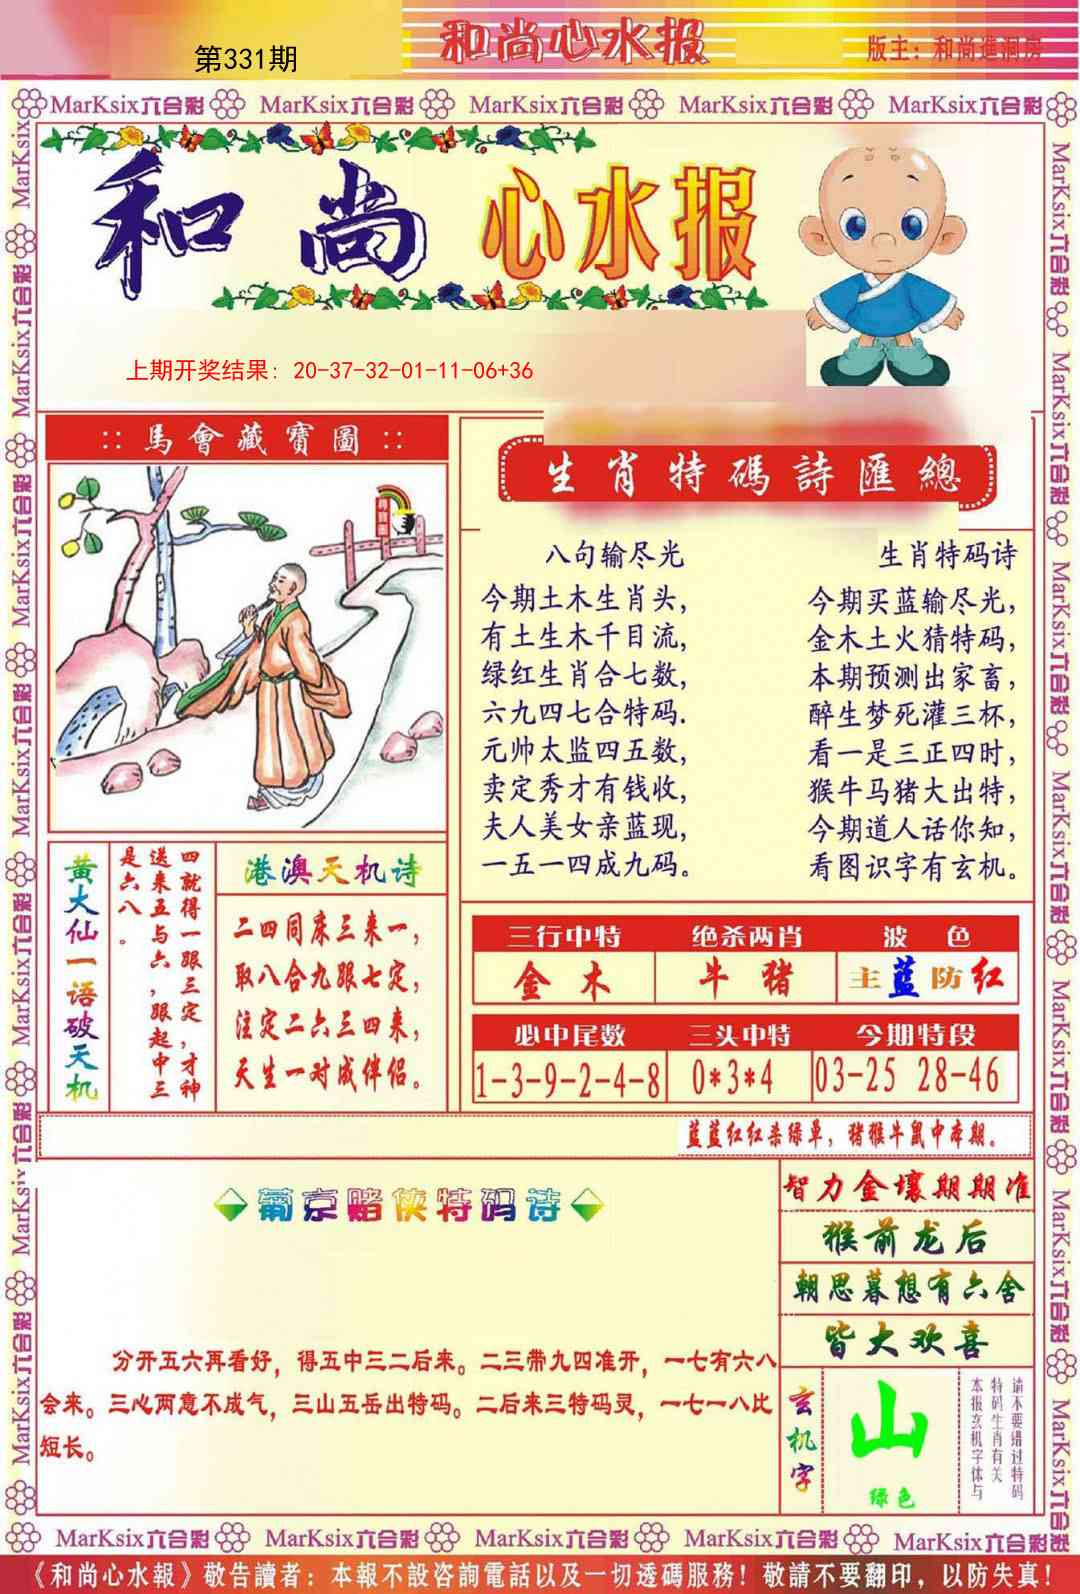 第331期
和尚心水报
版主：和尚進洞房
MarKsix六合彩 MarKsix六合彩 MarKsix六合彩 MarKsix六合彩 MarKsix六合彩
和尚 心水报
上期开奖结果: 20-37-32-01-11-06+36
:: 馬會藏寶圖 ::
生肖特碼詩匯總
八句输尽光
今期土木生肖头，
有土生木千目流，
绿红生肖合七数，
六九四七合特码.
元帅太监四五数，
卖定秀才有钱收，
夫人美女亲蓝现，
一五一四成九码。
生肖特码诗
今期买蓝输尽光，
金木土火猜特码，
本期预测出家畜，
醉生梦死灌三杯，
看一是三正四时，
猴牛马猪大出特，
今期道人话你知，
看图识字有玄机。
黄大仙一语破天机
四就得一跟三定，才神
送来五与六，跟起中三
是六八。
港澳天机诗
二四同床三来一，
取八合九跟七定，
注定二六三四来，
天生一对成伴侣。
三行中特 绝杀两肖 波色
金木 牛猪 主蓝防红
必中尾数 三头中特 今期特段
1-3-9-2-4-8 0*3*4 03-25 28-46
蓝蓝红红杀绿单，猪猴牛鼠中本期。
葡京赌侠特码诗
分开五六再看好，得五中三二后来。二三带九四准开，一七有六八
会来。三心两意不成气，三山五岳出特码。二后来三特码灵，一七一八比
短长。
智力金壤期期准
猴前龙后
朝思暮想有六舍
皆大欢喜
玄机字
山
绿色
请不要错过特码
特码生肖有关
本报玄机字体与
MarKsix六合彩 MarKsix六合彩 MarKsix六合彩 MarKsix六合彩 MarKsix六合彩
《和尚心水報》敬告讀者：本報不設咨詢電話以及一切透碼服務！敬請不要翻印，以防失真！